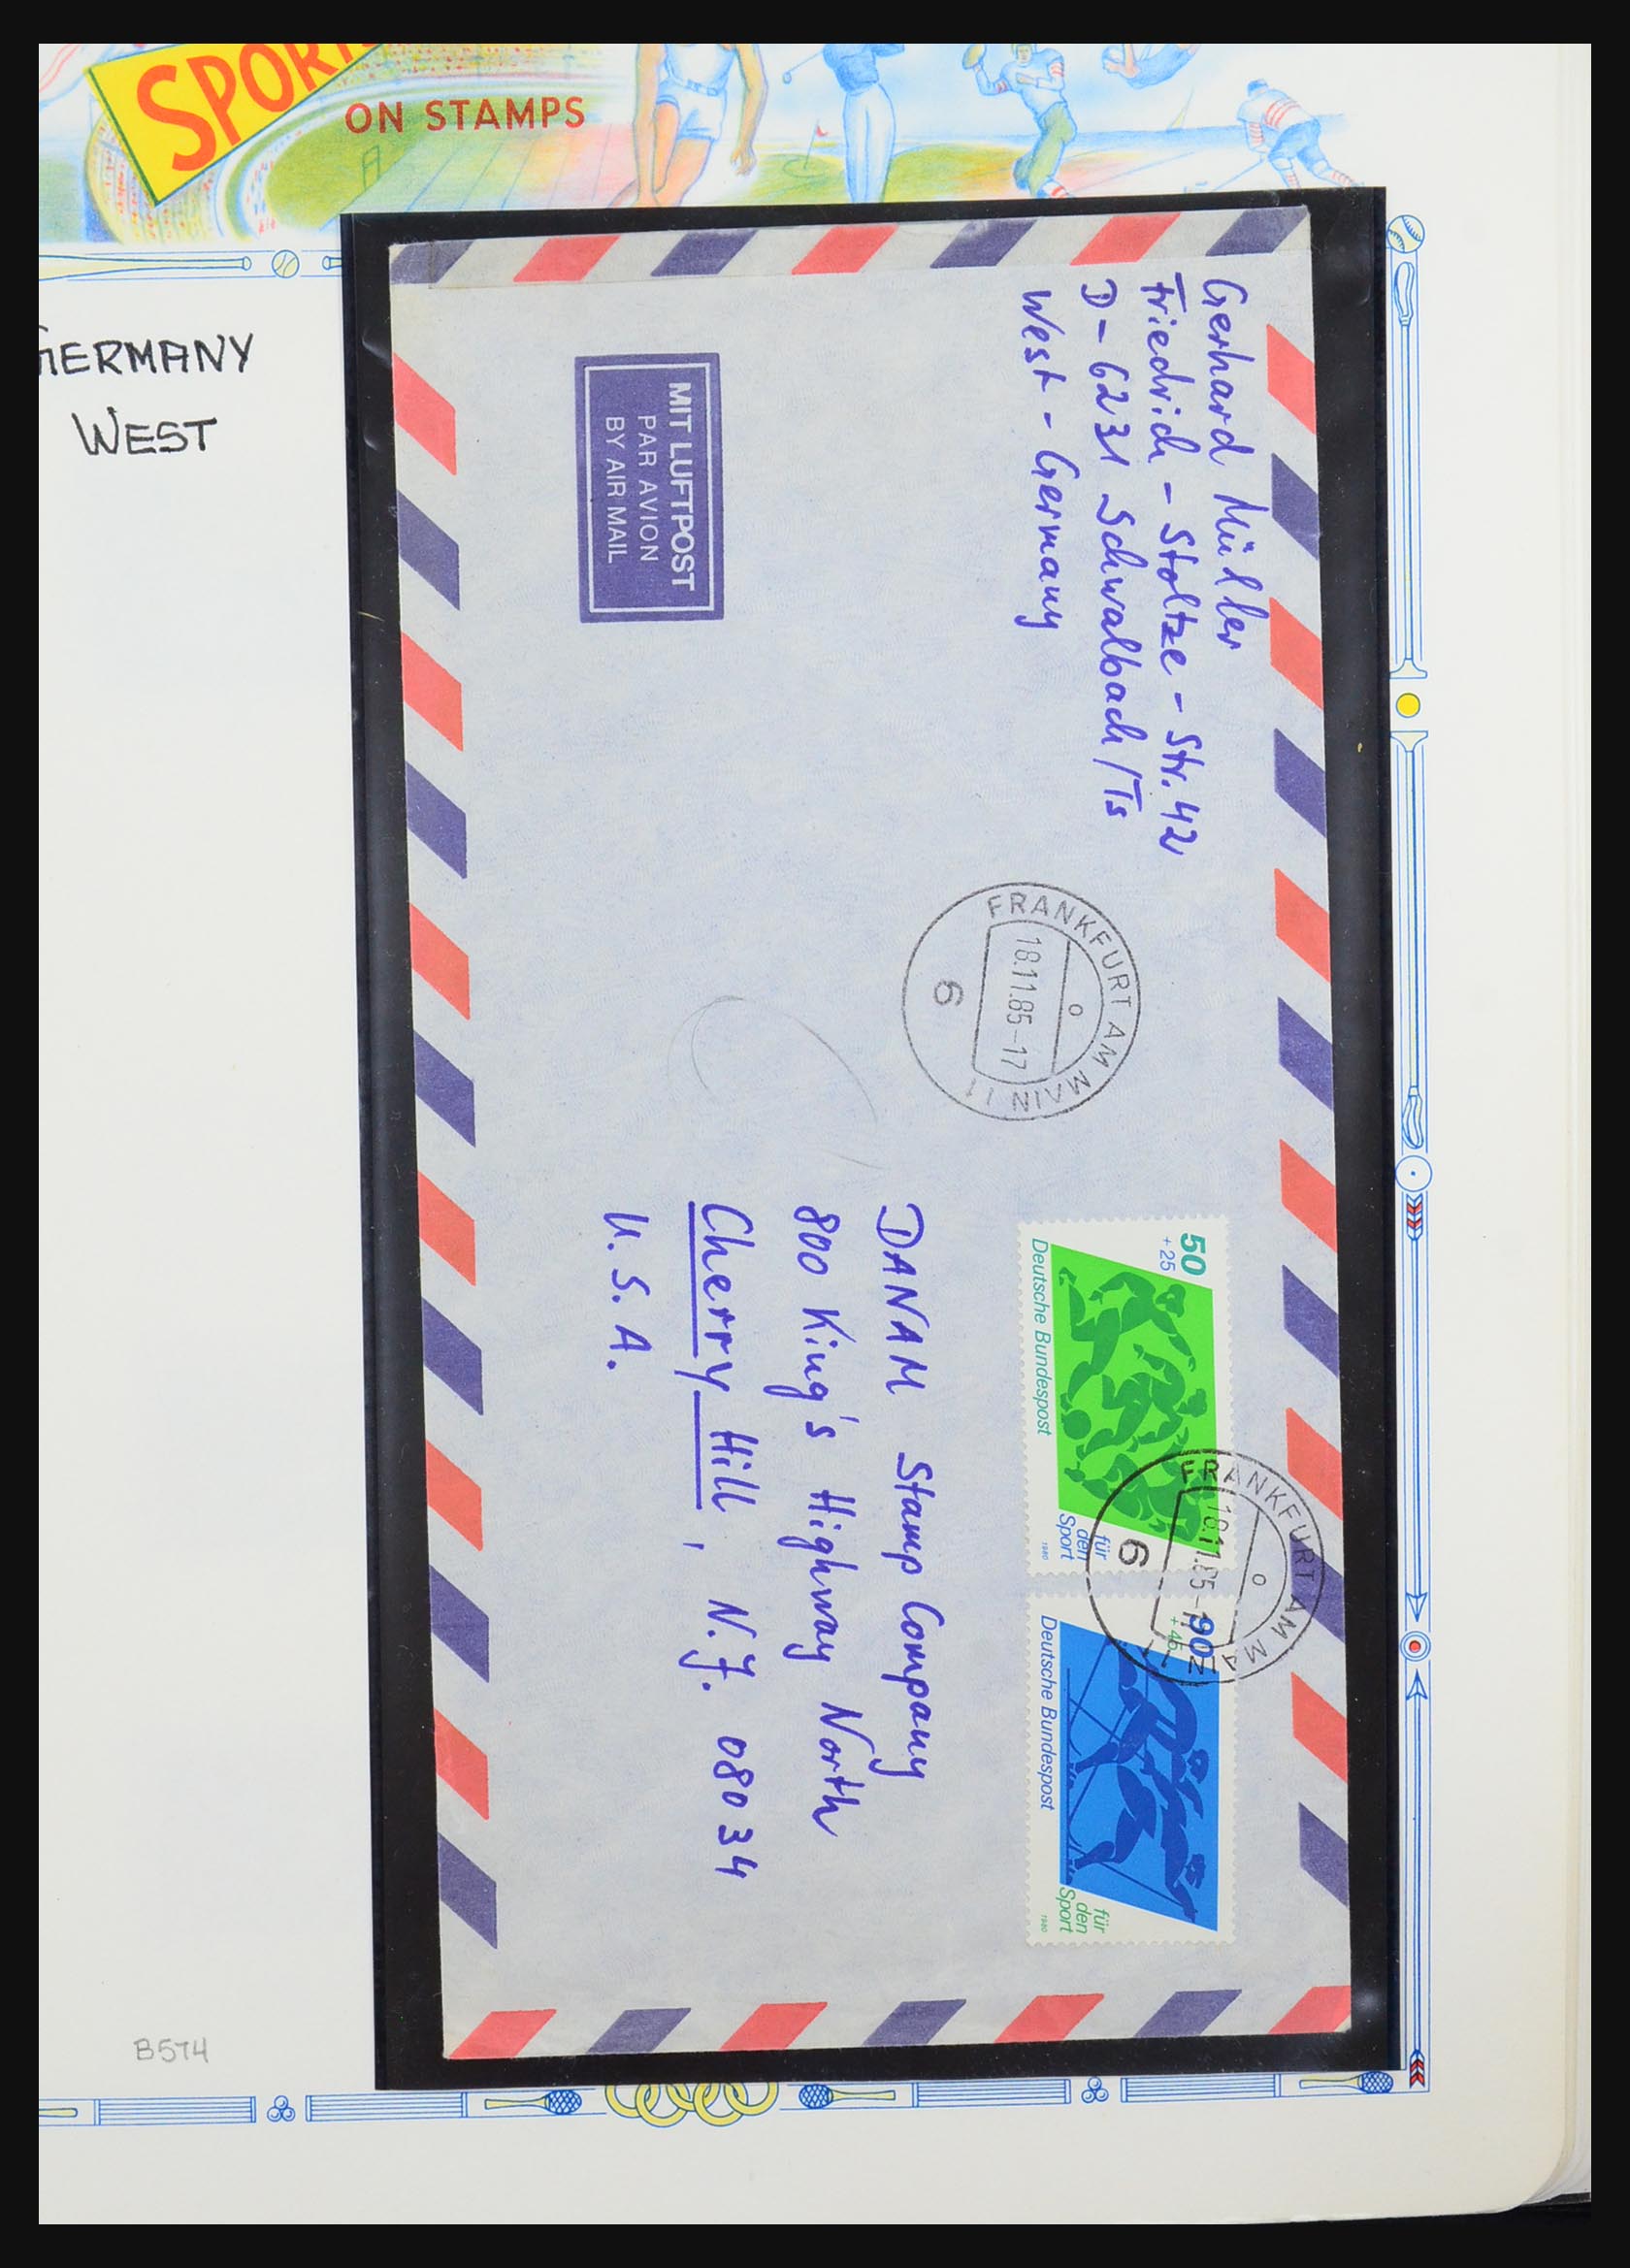 SPORTS
ON STAMPS
GERMANY
WEST
Gerhard Müller
Friedrich-Stoltze-Str. 42
D-6231 Schwalbach/Ts
West-Germany
MIT LUFTPOST
PAR AVION
BY AIR MAIL
FRANKFURT AM MAIN 11
18.11.85-17
6
50
+25
Deutsche Bundespost
für
den
Sport
1980
90
+45
Deutsche Bundespost
für
den
Sport
1980
FRANKFURT AM MAIN
18.11.85-17
6
DANAM Stamp Company
800 King's Highway North
Cherry Hill, N.J. 08034
U.S.A.
B574